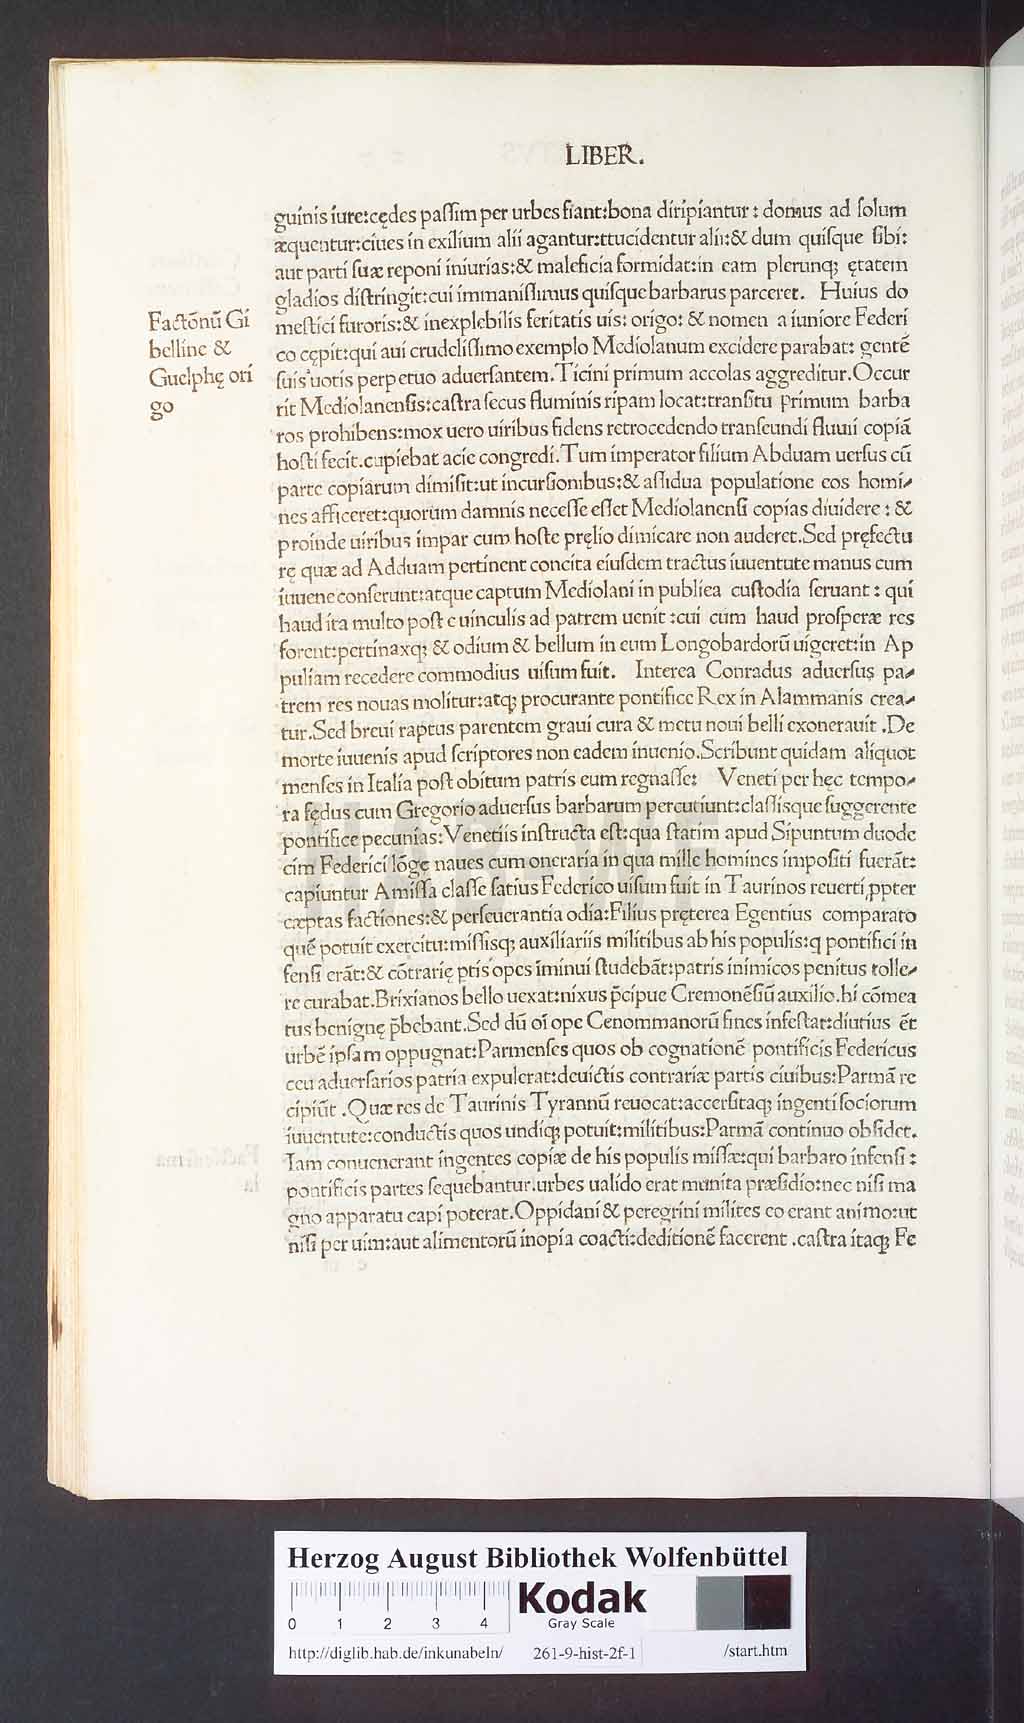 LIBER.
guinis iure:cędes paſſim per urbes fiant:bona diripiantur : domus ad ſolum
æquentur:ciues in exilium alii agantur:ttucidentur alii:& dum quiſque ſibi:
aut parti ſuæ reponi iniurias:& maleficia formidat:in eam plerunq; ętatem
gladios diſtringit:cui immaniſſimus quiſque barbarus parceret. Huius do
meſtici furoris:& inexplebilis feritatis uis: origo: & nomen a iuniore Federi
co cępit:qui aui crudeliſſimo exemplo Mediolanum excidere parabat: gentē
ſuis uotis perpetuo aduerſantem.Ticini primum accolas aggreditur.Occur
rit Mediolanenſis:caſtra ſecus fluminis ripam locat:tranſitu primum barba
ros prohibens:mox uero uiribus fidens retrocedendo tranſeundi fluuii copiā
hoſti fecit.cupiebat acie congredi.Tum imperator filium Abduam uerſus cū
parte copiarum dimiſit:ut incurſionibus:& aſſidua populatione eos homi-
nes afficeret:quorum damnis neceſſe eſſet Mediolanenſi copias diuidere : &
proinde uiribus impar cum hoſte pręlio dimicare non auderet.Sed pręfectu
rę quæ ad Adduam pertinent concita eiuſdem tractus iuuentute manus cum
iuuene conſerunt:atque captum Mediolani in publica cuſtodia ſeruant : qui
haud ita multo poſt e uinculis ad patrem uenit :cui cum haud proſperæ res
forent:pertinaxq; & odium & bellum in eum Longobardorū uigeret:in Ap
puliam recedere commodius uiſum fuit. Interea Conradus aduerſus pa-
trem res nouas molitur:atq; procurante pontifice Rex in Alammanis crea-
tur.Sed breui raptus parentem graui cura & metu noui belli exonerauit .De
morte iuuenis apud ſcriptores non eadem inuenio.Scribunt quidam aliquot
menſes in Italia poſt obitum patris eum regnaſſe: Veneti per hęc tempo-
ra fędus cum Gregorio aduerſus barbarum percutiunt:claſſisque ſuggerente
pontifice pecunias:Venetiis inſtructa eſt:qua ſtatim apud Sipuntum duode
cim Federici lōgę naues cum oneraria in qua mille homines impoſiti fuerāt:
capiuntur Amiſſa claſſe ſatius Federico uiſum fuit in Taurinos reuerti ꝓpter
cæptas factiones:& perſeuerantia odia:Filius pręterea Egentius comparato
quē potuit exercitu:miſſisq; auxiliariis militibus ab his populis:q pontifici in
fenſi erāt:& cōtrarię ꝑtis opes iminui ſtudebāt:patris inimicos penitus tolle-
re curabat.Brixianos bello uexat:nixus p̄cipue Cremonēſiū auxilio.hi cōmea
tus benignę p̄bebant.Sed dū oī ope Cenommanorū fines infeſtat:diutius ēt
urbē ipſam oppugnat:Parmenſes quos ob cognationē pontificis Federicus
ceu aduerſarios patria expulerat:deuictis contrariæ partis ciuibus:Parmā re
cipiūt .Quæ res de Taurinis Tyrannū reuocat:accerſitaq; ingenti ſociorum
iuuentute:conductis quos undiq; potuit:militibus:Parmā continuo obſidet.
Iam conuenerant ingentes copiæ de his populis miſſæ:qui barbaro infenſi :
pontificis partes ſequebantur.urbes ualido erat munita præſidio:nec niſi ma
gno apparatu capi poterat.Oppidani & peregrini milites eo erant animo:ut
niſi per uim:aut alimentorū inopia coacti:deditionē facerent .caſtra itaq; Fe
Factōnū Gi
belline &
Guelphę ori
go
HAB-WF
Herzog August Bibliothek Wolfenbüttel
0 1 2 3 4
Kodak
Gray Scale
http://diglib.hab.de/inkunabeln/ 261-9-hist-2f-1 /start.htm